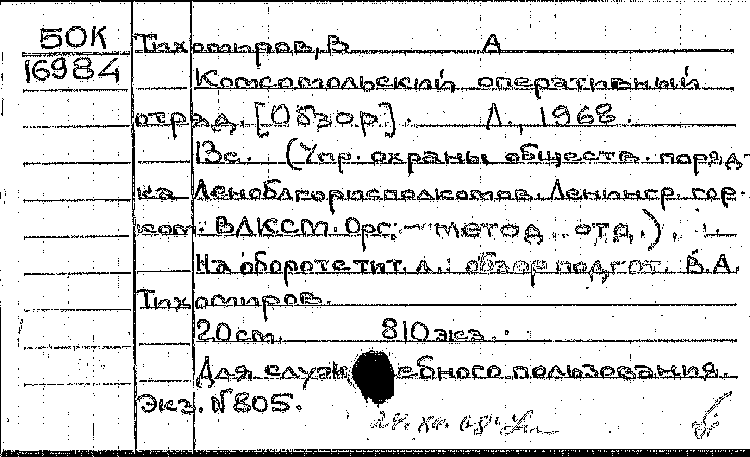 50К
16984
Тихомиров, В А
Комсомольский оперативный
отряд. [Обзор]. Л., 1968.
13с. (Упр. охраны обществ. поряд-
ка Леноблгорисполкомов. Ленингр. гор-
ком. ВЛКСМ. Орг.-метод. отд.).
На обороте тит. л.: обзор подгот. В.А.
Тихомиров.
20см. 810экз.
Для служебного пользования.
Экз. №805.